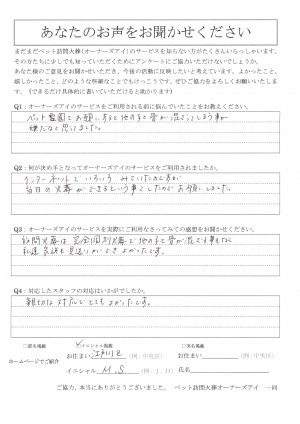 あなたのお声をお聞かせください
まだまだペット訪問火葬(オーナーズアイ)のサービスを知らない方がたくさんいらっしゃいます。
その方たちに少しでも知っていただくためにアンケートにご協力いただけないでしょうか。
あなた様のご意見をお聞かせいただき、今後の活動に反映したいと考えています。よかったこと、
嬉しかったこと、どのような些細なことでもけっこうです。ぜひご協力をよろしくお願いいたしま
す。(できるだけ具体的に書いていただけると助かります)
Q1:オーナーズアイのサービスをご利用される前に悩んでいたことをお教えください。
ペット霊園でお願いすると他の子と骨が混ざってしまう事が
嫌だなと思いました。
Q2:何が決め手となってオーナーズアイのサービスをご利用されましたか。
インターネットでいろいろみていたのですが
当日の火葬ができるという事でしたのでお願いしました。
Q3:オーナーズアイのサービスを実際にご利用なさってみての感想をお聞かせください。
訪問火葬は完全個別火葬で他の子と骨が混ざる事もなく
私達家族も見送りができよかったです。
Q4:対応したスタッフの対応はいかがでしたか。
親切な対応でとてもよかったです。
ホームページでご紹介
□匿名掲載
イニシャル掲載
□実名掲載
お住まい 江戸川区 (例:中央区)
お住まい (例:中央区)
イニシャル M.S (例:J.H)
氏名
ご協力、本当にありがとうございました。 ペット訪問火葬オーナーズアイ 一同